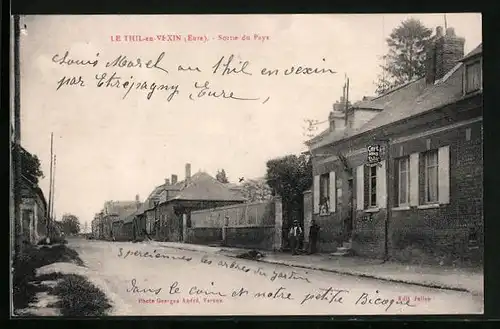 LE THIL-en-VEXIN (Eure). - Sortie du Pays
Louis Morel au Thil en vexin
par Etrépagny Eure
persiennes les arbres du jardin
dans le coin et notre petite Bicoque
Photo Georges André, Vernon
Edit.